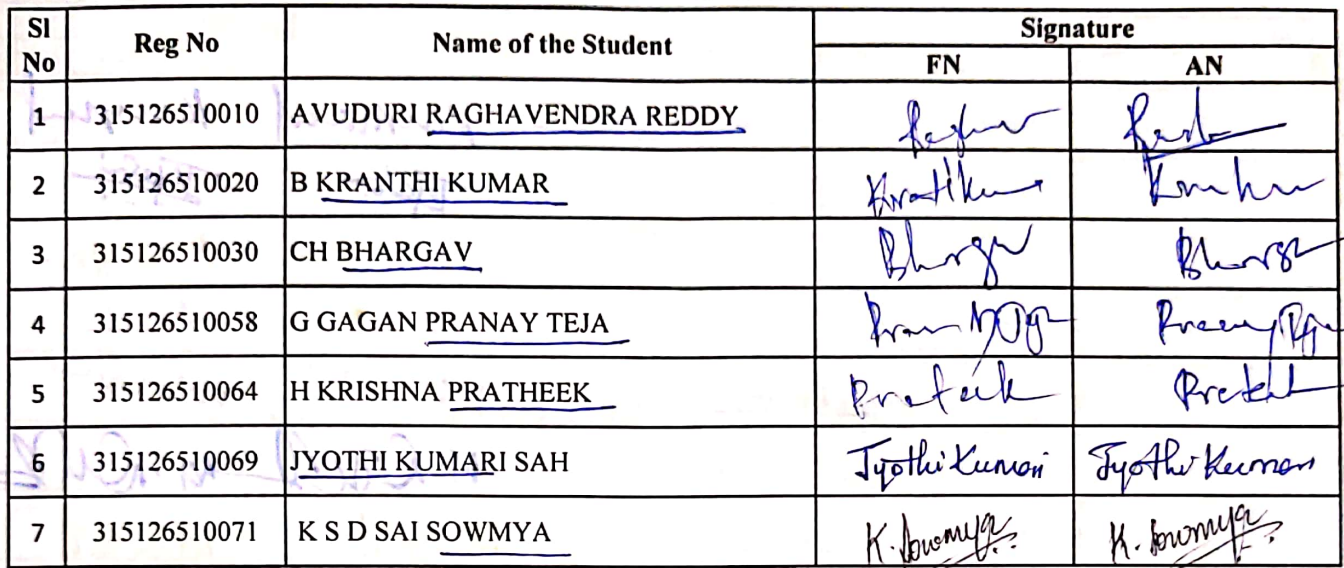 Sl No Reg No Name of the Student Signature
FN AN
1 315126510010 AVUDURI RAGHAVENDRA REDDY
2 315126510020 B KRANTHI KUMAR
3 315126510030 CH BHARGAV Bhargav
4 315126510058 G GAGAN PRANAY TEJA
5 315126510064 H KRISHNA PRATHEEK Prateek
6 315126510069 JYOTHI KUMARI SAH Jyothi Kumari Jyothi Kumari
7 315126510071 K S D SAI SOWMYA K. Sowmya K. Sowmya